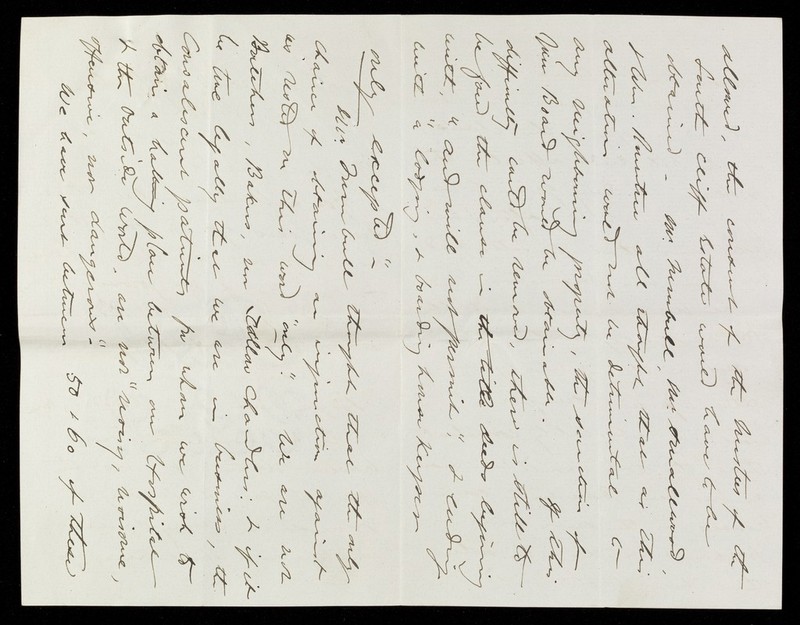 allowed, the consent of the Trustees of the
South Cliff Estate would have to be
obtained - Mr Turnbull, Mr Smallwood,
& Mr. all thought that as this
alteration would not be detrimental to
any neighbouring property, the sanction of
your Board would be obtainable. If this
difficulty could be removed, there is still to
be faced the clause in the title deeds beginning
with, "and will not permit", & ending
with "a lodging, & boarding house keeper
only excepted" -
Mr. Turnbull thought that the only
chance of obtaining an injunction against
us rested on this word "only." We are not
Butchers, Bakers, nor Tallow Chandlers; & if it
be true legally that we are in business, the
Convalescent patients for whom we wish to
obtain a halting place between our Hospital
& the outside world, are not "noisy, noisome,
offensive, nor dangerous."
We have sent between 50 & 60 of these